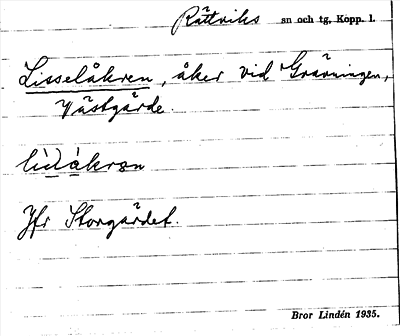 Rättviks sn och tg, Kopp. l.
Lisselåkren, åker vid Gravningen,
Västgärde.
Jfr Storgärdet.
Bror Lindén 1935.